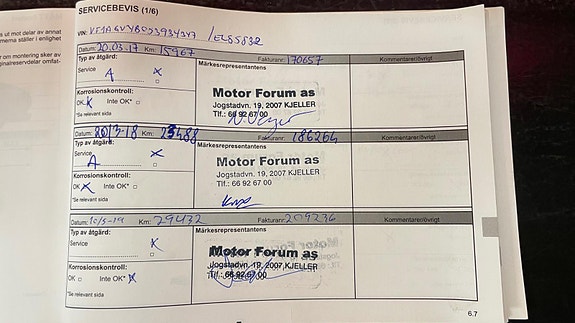 SERVICEBEVIS (1/6)
VIN: / EL55832
Datum: 20.03.17 Km: 15967 Fakturanr: 170657 Kommentarer/övrigt
Typ av åtgärd: Märkesrepresentantens
Service A x
Motor Forum as
Jogstadvn. 19, 2007 KJELLER
Tlf.: 66 92 67 00
Korrosionskontroll:
OK x Inte OK*
*Se relevant sida
Datum: 20/3-18 Km: 23488 Fakturanr: 186264 Kommentarer/övrigt
Typ av åtgärd: Märkesrepresentantens
Service A x
Motor Forum as
Jogstadvn. 19, 2007 KJELLER
Tlf.: 66 92 67 00
Korrosionskontroll:
OK x Inte OK*
*Se relevant sida
Datum: Km: 29432 Fakturanr: 209236 Kommentarer/övrigt
Typ av åtgärd: Märkesrepresentantens
Service x
Motor Forum as
Jogstadvn. 19, 2007 KJELLER
Tlf.: 66 92 67 00
Korrosionskontroll:
OK Inte OK* x
*Se relevant sida
6.7